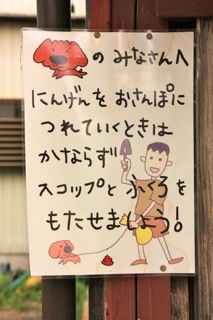 の みなさんへ
にんげんを おさんぽに
つれていくときは
かならず
スコップと ふくろを
もたせましょう!